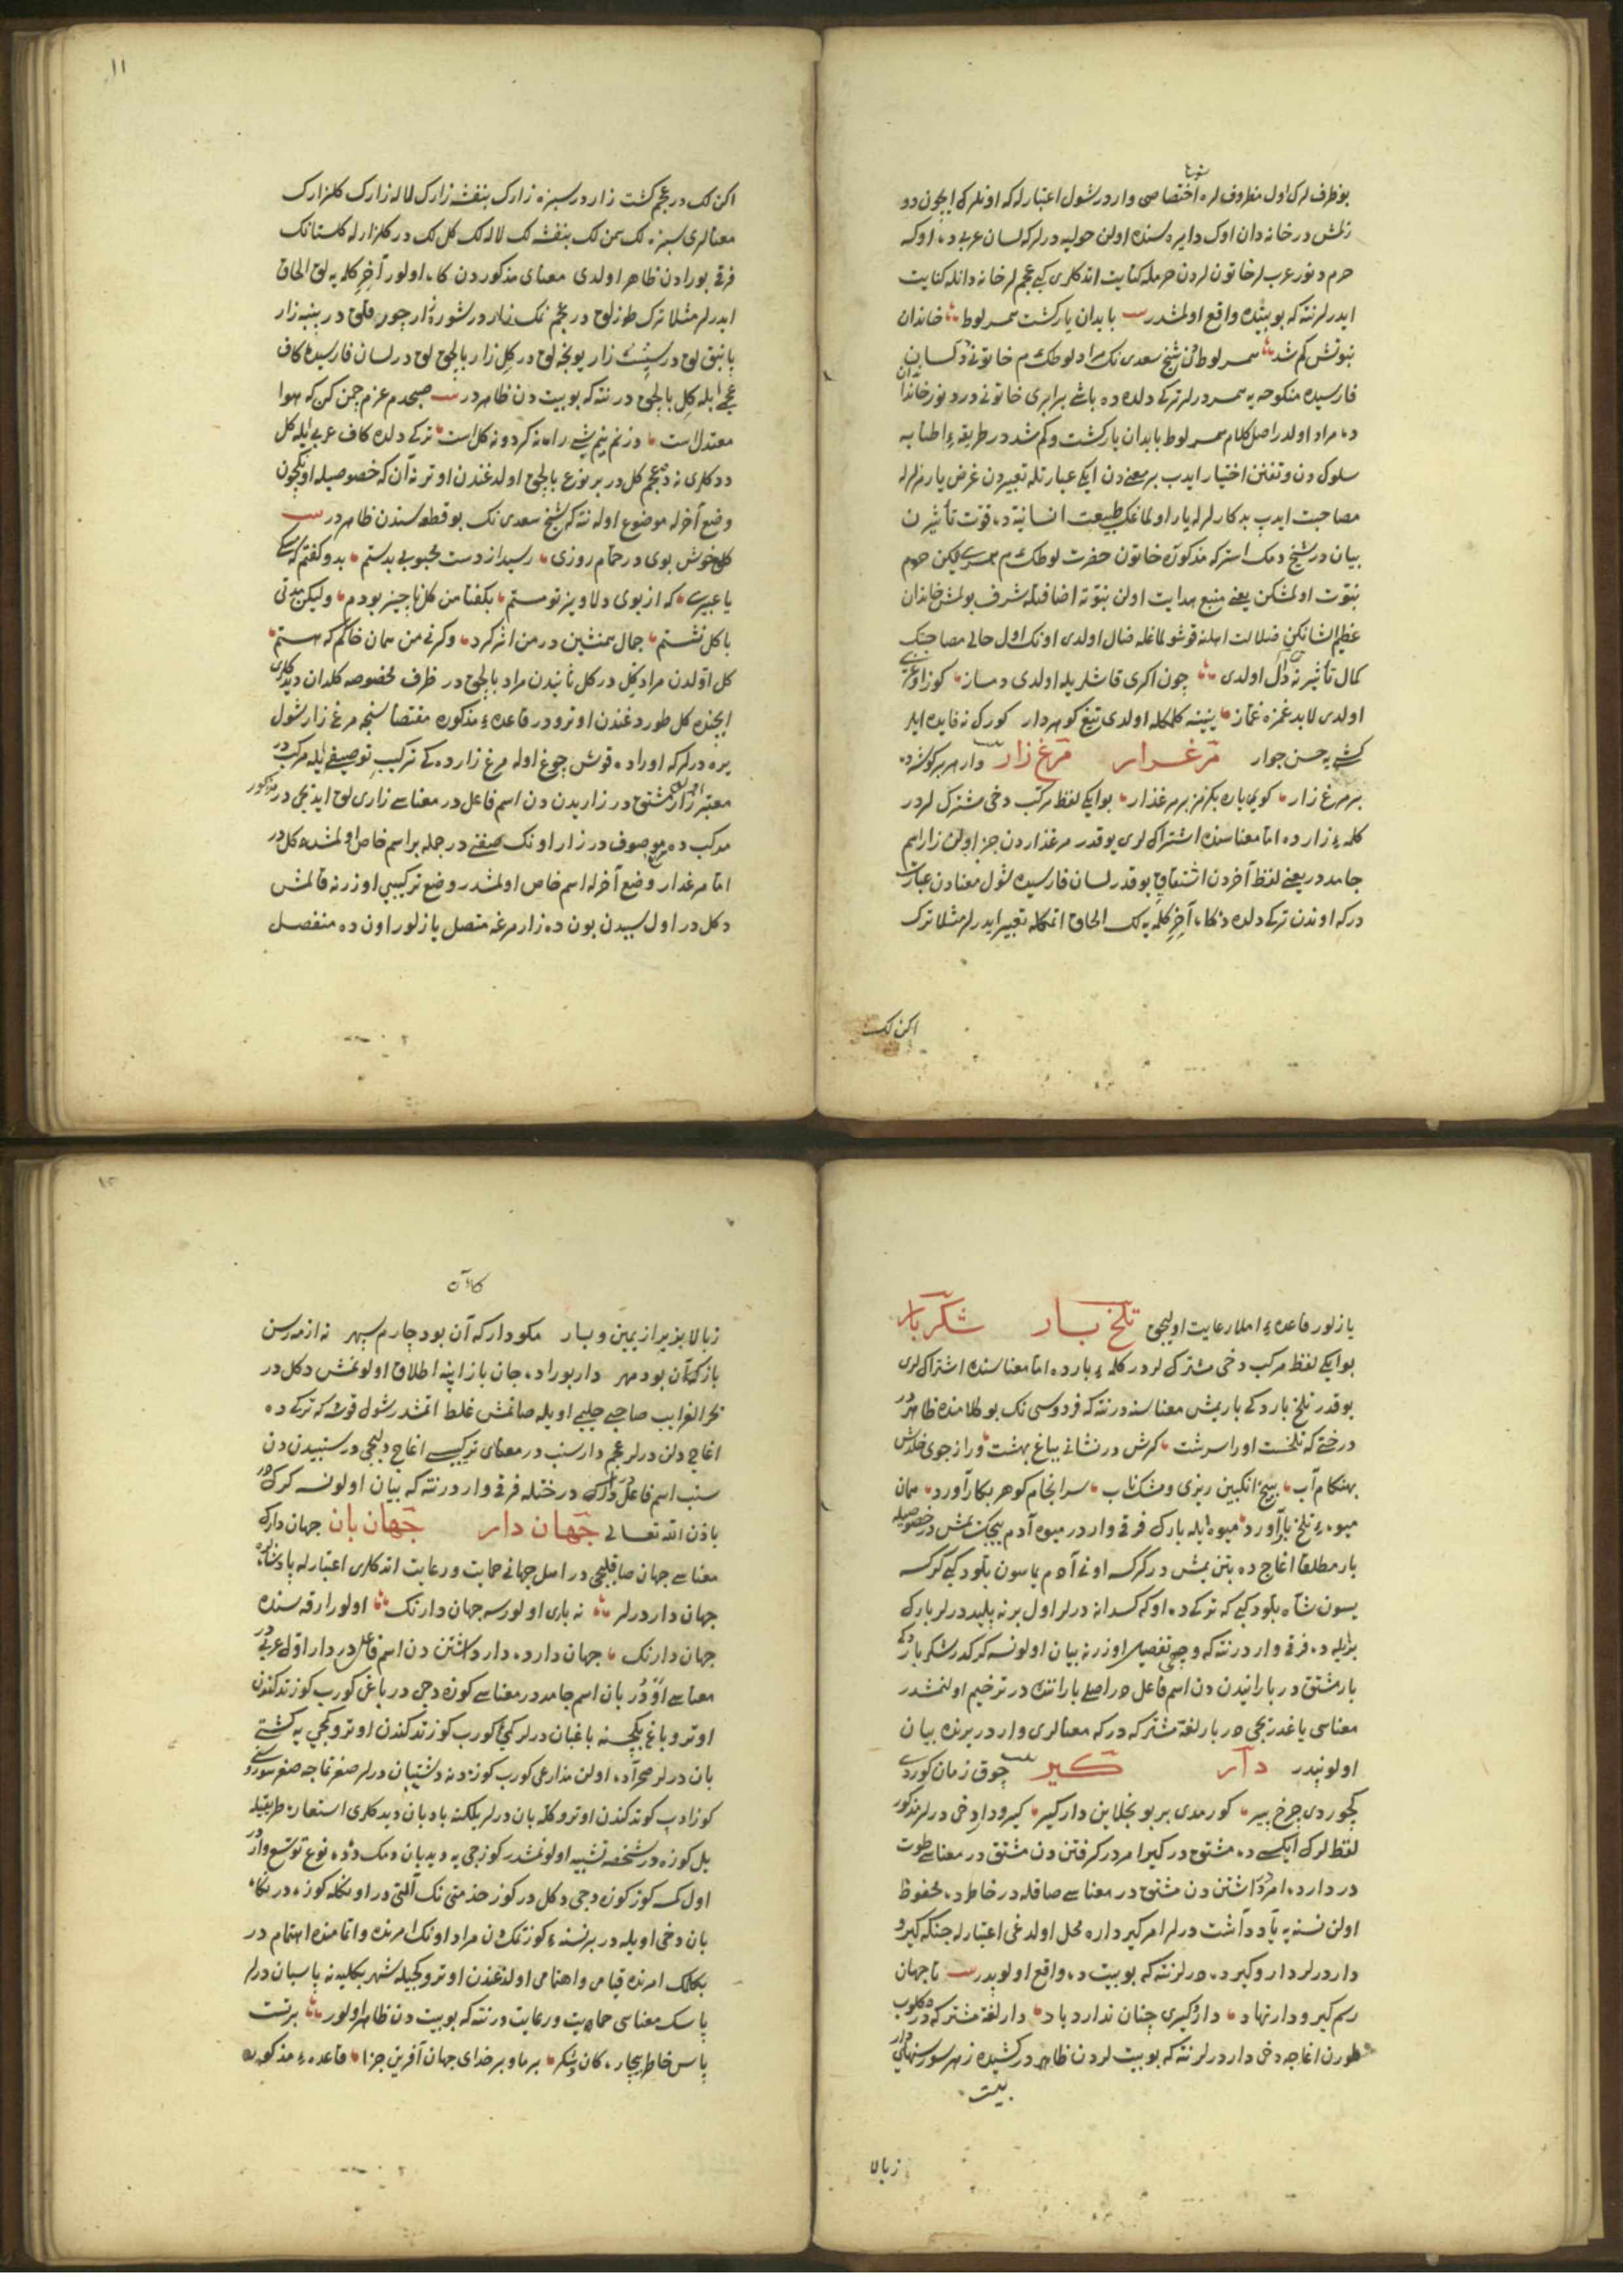 بو ظرف لرك اول مظروف لره اختصاصى واردر شول اعتبارله كه اونلرك ايچون دو
زلمش در خانه دان اوك دايره سنده اولن حوليه درلر كه لسان عربيده اوكه
حرم دنور عرب لر خاتون لردن حرمله كنايت اتدكلرى كبى عجم لر خانه دانله كنايت
ايدرلر نته كه بو بيتده واقع اولمشدر بيت با بدان يار گشت همسر لوط خاندان
نبوتش گم شد همسر لوط دن شيخ سعدى نك مراد لوطك م خاتونى دك
فارسيده منكوحه يه همسر درلر تركى دلده ده باشى برابرى خاتونى در دنور خاندان
ده مراد اولدر اصل كلام همسر لوط با بدان يار گشت و گم شد در طريقهٔ اطنابه
سلوك دن و تفنن اختيار ايدب بر معنى دن ايكى عبارتله تعبير دن غرض يارمزلرله
مصاحبت ايدب بدكارلرله يار اولماغك طبيعت انسانيه ده قوت تأثيرن
بيان در شيخ دمك استر كه مذكوره خاتون حضرت لوطك م همسرى ليكن حرم
نبوت اولمشكن يعنى منبع هدايت اولن نبوته اضافتله شرف بولمش خاندان
عظيم الشانكن ضلالت اهلنه قوشولماغله ضال اولدى اونك اول حالى مصاحبتك
كمال تأثيرنه دال اولدى چون اكرى قاشلريله اولدى دمساز كوز اوغريسى
اولدى لابد غمزه غماز يننه كلمكله اولدى تيغ كوهردار كورك نه فايده ايلر
كشى يه حسن جوار مرغزار مرغ زار بيت وار هر بر كوشه ده
بر مرغ زار كويا ياره بكزر بر مرغزار بو ايكى لفظ مركب دخى مشترك لردر
كلمهٔ زارده اما معناسنده اشتراك لرى يوقدر مرغزاردن جزء اولن زار اسم
جامددر يعنى لفظ آخردن اشتقاقى يوقدر لسان فارسيده شول معنادن عبارت
دركه اوندن تركى دلده دخى آخر كلمه يه لك الحاق اتمكله تعبير ايدرلر مثلا ترك
اكن لك
١١
اكن لك در عجم كشت زار در سبزه زارك بنفشه زارك لاله زارك كلزارك
معنالرى سبزه لك چمن لك بنفشه لك لاله لك كل لك در كلزارله كلستانك
فرقى بورادن ظاهر اولدى معناى مذكوردن كاه اولور آخر كلمه يه لق الحاق
ايدرلر مثلا ترك طوزلق در عجم نمك زار در شوره زار چورقلق در پنبه زار
پانبق لق در سپست زار يونجه لق در كل زار بالچق لق در لسان فارسيده كاف
عجمى ايله كل بالچق در نته كه بو بيت دن ظاهردر بيت صبحدم عزم چمن كن كه هوا
معتدل است دزنم نيم شبى راه نه گرد و نه گل است تركى دلده كاف عربى ايله كل
ددكلرى نه در عجم كل در بر نوع بالچق اولدغندن اوترنه آن كه خصوصيله اونكچون
وضع آخرله موضوع اوله نته كه شيخ سعدى نك بو قطعه سندن ظاهردر بيت
گل خوش بوى در حمام روزى رسيد از دست محبوبى بدستم بدو گفتم كه مشكى
يا عبيرى كه از بوى دلاويز تو مستم بگفتا من گل ناچيز بودم وليكن مدتى
با گل نشستم جمال همنشين در من اثر كرد وگرنه من همان خاكم كه هستم
كل اولدن مراد كل در كل ثانيدن مراد بالچق در ظرف مخصوصه كلدان ديدكلرى
ايچنده كل طوردغندن اوترودر قاعدهٔ مذكوره مقتضاسنجه مرغ زار شول
يره درلر كه اوراده قوش چوغ اوله مرغ زارده كى تركيب توصيفى ايله مركبدر
معتبر زار مشتق در زاريدن دن اسم فاعل در معناسى زارى لق ايديجى در مذكور
مركب ده مرغ موصوف در زار اونك صفتى در جمله بر اسم خاص اولمشده كل در
اما مرغزار وضع آخرله اسم خاص اولمشدر وضع تركيبى اوزرنه قالمش
دكل در اول سببدن بونده زار مرغه متصل يازلور اونده منفصل
يازلور قاعدهٔ املا رعايت اوليجق تلخ بار شكر بار
بو ايكى لفظ مركب دخى مشترك لردر كلمهٔ بارده اما معناسنده اشتراك لرى
يوقدر تلخ بارده كى بار يمش معناسنه در نته كه فردوسى نك بو كلامنده ظاهردر
درختى كه تلخست اورا سرشت گرش در نشانى بباغ بهشت ور از جوى خلدش
بهنگام آب ببيخ انگبين ريزى و مشك ناب سرانجام گوهر بكار آورد همان
ميوهٔ تلخ بار آورد ميوه ايله بارك فرقى واردر ميوه آدم ييجك يمش در خصوصيله
بار مطلقا اغاچ ده بتن يمش در كرك سه اونى آدم يماسون بلود كبى كرك سه
يسون شاه بلود كبى كه تركى ده اوكه كسدانه درلر اول برنه پليد درلر بارك
بزايله ده فرقى واردر نته كه وجه تفصيل اوزرنه بيان اولونسه كركدر شكر بارده كى
بار مشتق در بارانيدن دن اسم فاعل در اصلى باراننده در ترخيم اولنمشدر
معناسى ياغدريجى در بار لغة مشتركه دركه معنالرى واردر يرنده بيان
اولونيدر دار گير بيت چوق زمان كوردى
كچوردى چرخ پير كورمدى بر بونجلاين دار كير گير ودار دخى درلر مذكور
لفظ لرك ايكسى ده مشتق در كير امردر گرفتن دن مشتق در معناسى طوت
در دارده امر داشتن دن مشتق در معناسى صاقله در خاطرده محفوظ
اولن نسنه يه ياد داشت درلر امر كير داره محل اولدغى اعتبارله جنكه كير و
دار درلر دار و كيرده درلر نته كه بو بيت ده واقع اولوپدر بيت تا جهان
رسم گير و دار نهاد دار و گيرى چنان ندارد ياد دار لغة مشتركه در دكلوب
طورن اغاجه دخى دار درلر نته كه بو بيت لردن ظاهر در كشيده زهر سو رسنهاى دار
بيت
زبالا
١٢
زبالا بزير از يمين و يسار مگو دار كه آن بود چارم سپهر نه از مه رسن
بازگه آن بود مهر دار بوراده جان بازا پنه اطلاق اولونمش دكل در
بحر الغرايب صاحبى حليمى اويله صانمش غلط اتمشدر شول قوشه كه تركى ده
اغاچ دلن درلر عجم دار سنب در معناى تركيبى اغاچ دليجى در سنبيدن دن
سنب اسم فاعل در دارك درختله فرقى واردر نته كه بيان اولونسه كركدر
باذن الله تعالى جهان دار جهان بان جهان دارك
معناسى جهان صاقليجى در اهل جهانى حمايت و رعايت اتدكلرى اعتبارله پادشاهه
جهان دار درلر نه يارى اولورسه جهان دارنك اولور ارقه سنده
جهان دارنك جهان دارده دار داشتن دن اسم فاعل در دار اول عربى در
معناسى اودر بان اسم جامددر معناسى كوزه دجى در باغى كورب كوزتدكندن
اوترو باغ بكچى سنه باغبان درلر كمى كورب كوزتدكندن اوترو كمجى يه كشتى
بان درلر صحراده اولن مزارعى كورب كوزدنه دشتبان درلر صغرتماجه صغر سورسى
كوزادب كوتدكندن اوترو كله بان درلر يلكنه بادبان ديدكلرى استعاره طريقيله
يل كوزه در شخصه تشبيه اولونمشدر كوزجى يه ديدبان دمك ده نوع توسع واردر
اول كمسه كوز كوزه دجى دكل در كوز خدمتى نك آلتى در اونكله كوزه در نكاه
بان دخى اويله در بر نسنه كوزتمك دن مراد اونك امرنده و اتمامنده اهتمام در
بكلك امرنده قيام و اهتمامى اولدغندن اوترو كيجيله شهر بكليه نه پاسبان درلر
پاسك معناسى حمايت و رعايت در نته كه بو بيت دن ظاهر اولور بر تست
پاس خاطر بيچارگان و شكر بر ما و بر خداى جهان آفرين جزا قاعدهٔ مذكوره